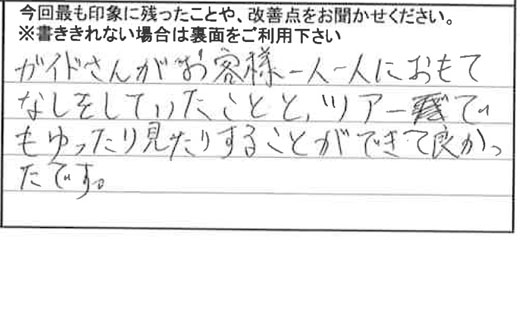 今回最も印象に残ったことや、改善点をお聞かせください。
※書ききれない場合は裏面をご利用下さい
ガイドさんがお客様一人一人におもて
なしをしていたことと、ツアーで
もゆったり見たりすることができて良かっ
たです。